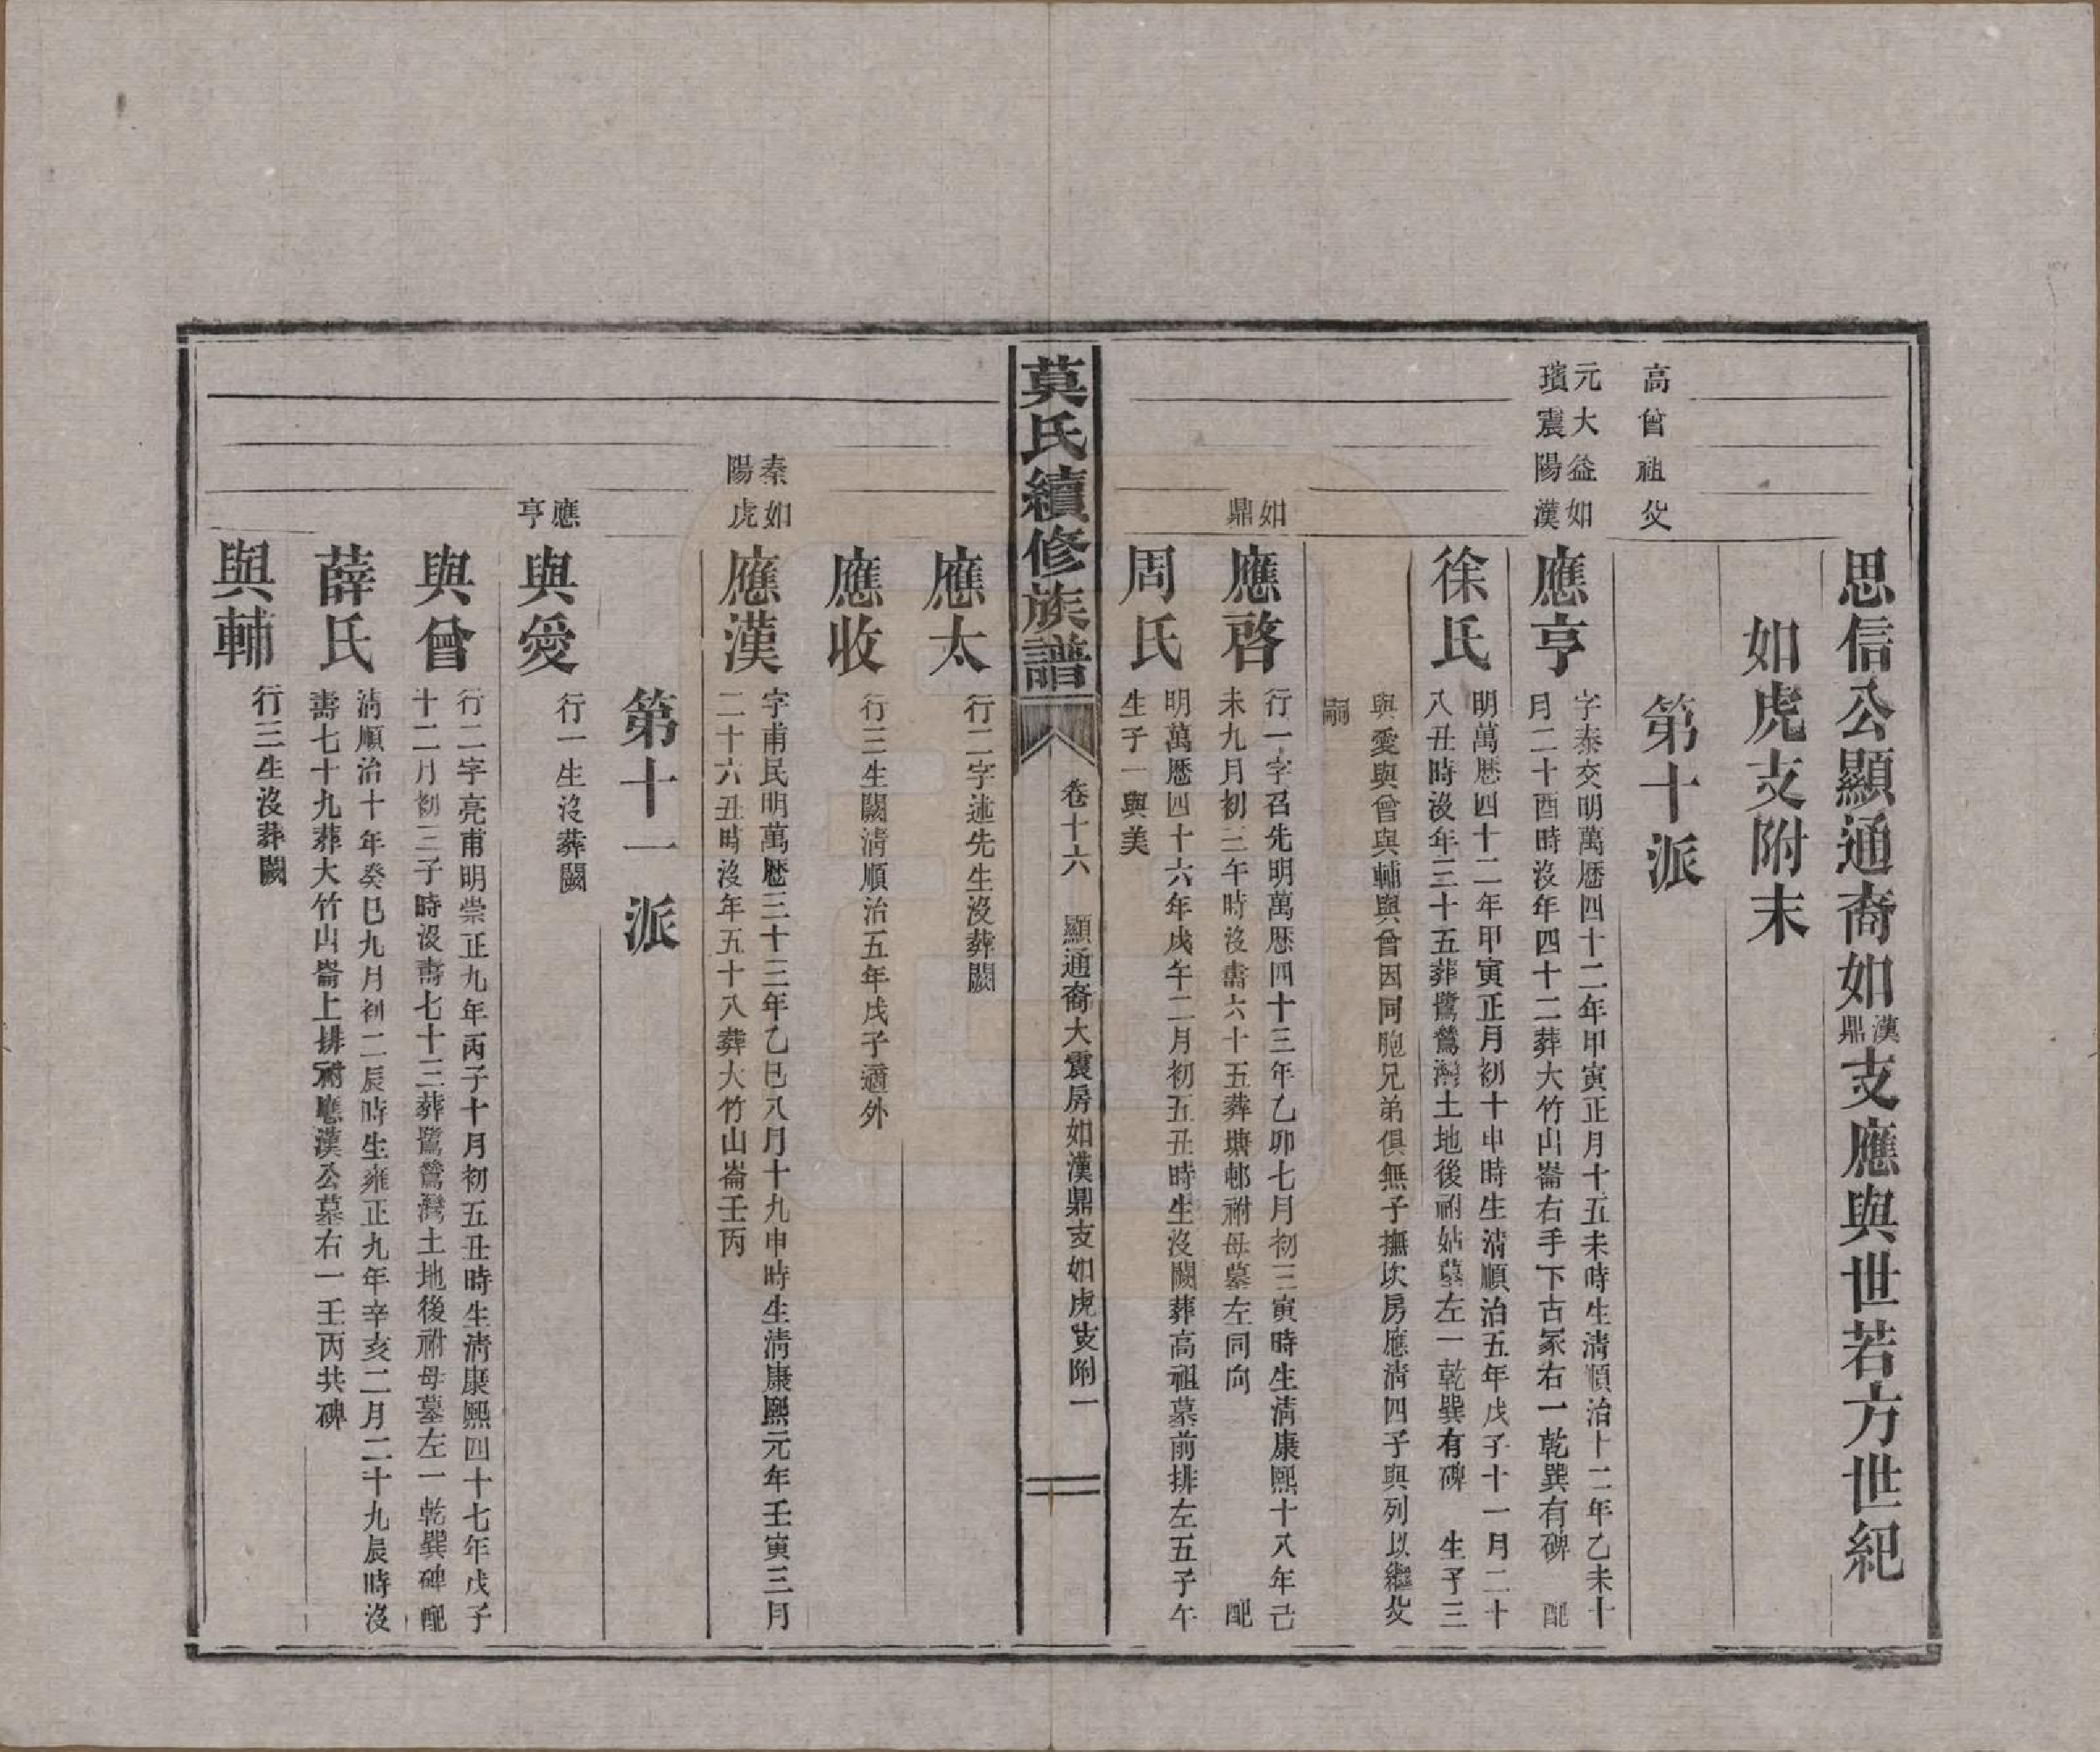 思信公顯通裔如漢鼎支應與世若方世紀
如虎支附末
高曾祖父
第十派
元大益如
璸震陽漢
應亨
字泰交明萬歷四十二年甲寅正月十五未時生清順治十二年乙未十
月二十酉時沒年四十二葬大竹山崙右手下古冢右一乾巽有碑 配
徐氏
明萬歷四十二年甲寅正月初十申時生清順治五年戊子十一月二十
八丑時沒年三十五葬鷺鶿灣土地後祔姑墓左一乾巽有碑 生子三
與愛與曾與輔與曾因同胞兄弟俱無子撫坎房應清四子與列以繼父
嗣
如鼎
應啓
行一字召先明萬歷四十三年乙卯七月初三寅時生清康熙十八年己
未九月初三午時沒壽六十五葬塘邨祔母墓左同向 配
周氏
明萬歷四十六年戊午二月初五丑時生沒闕葬高祖墓前排左五子午
生子一與美
莫氏續修族譜
卷十六 顯通裔大震房如漢鼎支如虎支附 一
應太
行二字述先生沒葬闕
應收
行三生闕清順治五年戊子遁外
秦如
陽虎
應漢
字甫民明萬歷三十三年乙巳八月十九申時生清康熙元年壬寅三月
二十六丑時沒年五十八葬大竹山崙壬丙
第十一派
應亨
與愛
行一生沒葬闕
與曾
行二字亮甫明崇正九年丙子十月初五丑時生清康熙四十七年戊子
十二月初三子時沒壽七十三葬鷺鶿灣土地後祔母墓左一乾巽碑 配
薛氏
清順治十年癸巳九月初二辰時生雍正九年辛亥二月二十九辰時沒
壽七十九葬大竹山崙上排祔應漢公墓右一壬丙共碑
與輔
行三生沒葬闕